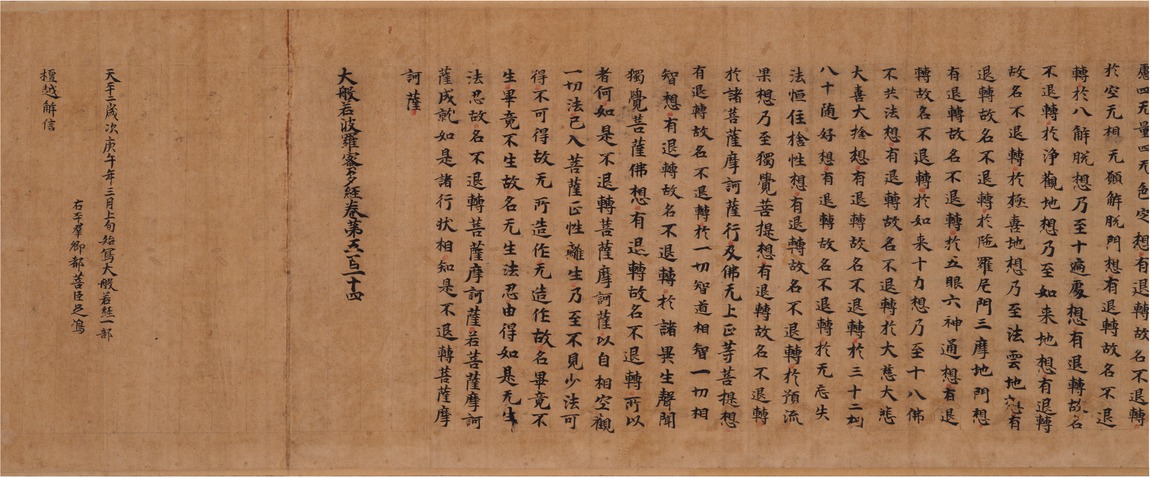 慮四无量四无色定想有退轉故名不退轉
於空无相无願解脫門想有退轉故名不退
轉於八解脫想乃至十遍處想有退轉故名
不退轉於淨觀地想乃至如来地想有退轉
故名不退轉於極喜地想乃至法雲地想有
退轉故名不退轉於陁羅尼門三摩地門想
有退轉故名不退轉於五眼六神通想有退
轉故名不退轉於如来十力想乃至十八佛
不共法想有退轉故名不退轉於大慈大悲
大喜大捨想有退轉故名不退轉於三十二相
八十随好想有退轉故名不退轉於无忘失
法恒住捨性想有退轉故名不退轉於預流
果想乃至獨覺菩提想有退轉故名不退轉
於諸菩薩摩訶薩行及佛无上正等菩提想
有退轉故名不退轉於一切智道相智一切相
智想有退轉故名不退轉於諸異生聲聞
獨覺菩薩佛想有退轉故名不退轉所以
者何如是不退轉菩薩摩訶薩以自相空觀
一切法已入菩薩正性離生乃至不見少法可
得不可得故无所造作无造作故名畢竟不
生畢竟不生故名无生法忍由得如是无生
法忍故名不退轉菩薩摩訶薩若菩薩摩訶
薩成就如是諸行狀相知是不退轉菩薩摩
訶薩
大般若波羅蜜多經卷第五百一十四
天平二歳次庚午年三月上旬始寫大般若經一部
右平羣郷都菩臣足
檀越解信